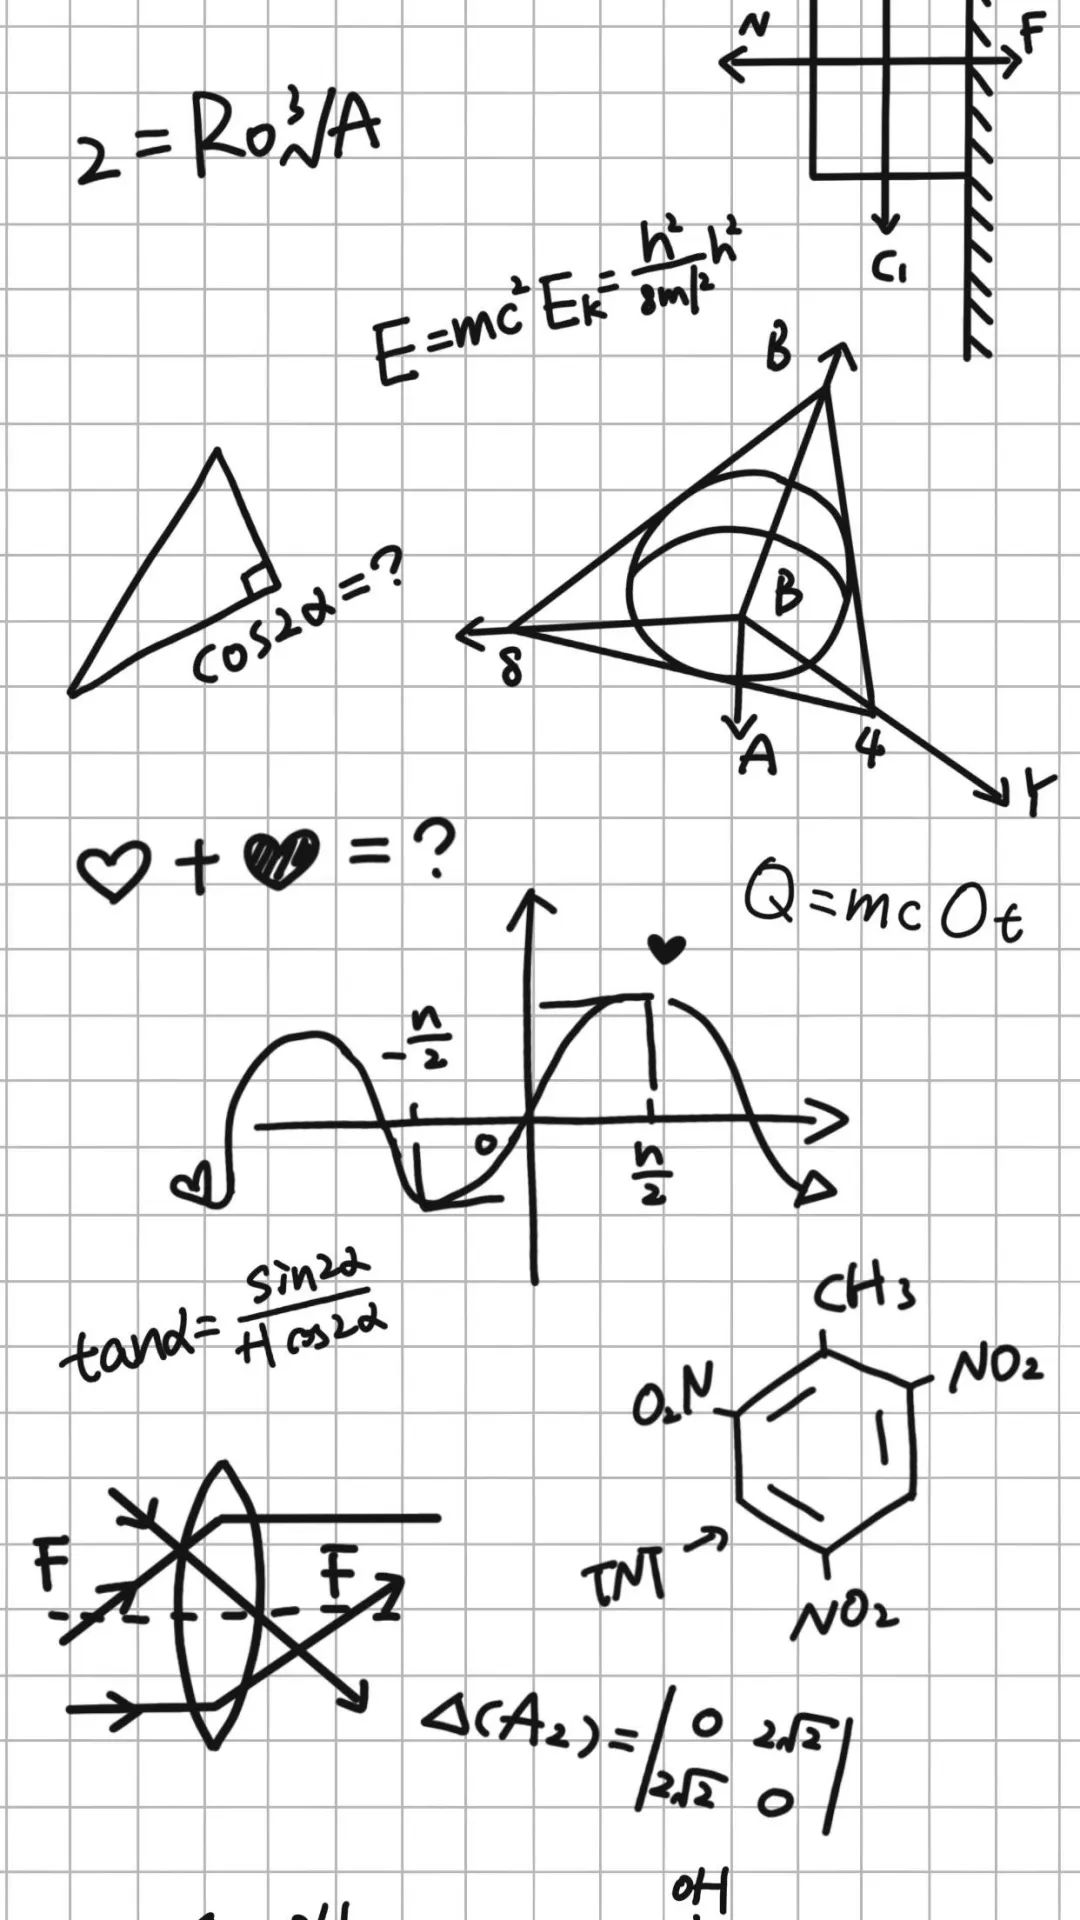 N F
2 = Ro ³√A
C₁
E=mc² Eₖ= h²/8ml² h²
B
cos2α=?
B
8
A
4
Y
♡ + ♥ = ?
Q=mcOt
♥
-n/2
0
n/2
tanα= sin2α/Hcos2α
CH₃
O₂N NO₂
F F
TNT →
NO₂
Δ(A₂)=|0 2√2|
|2√2 0|
OH